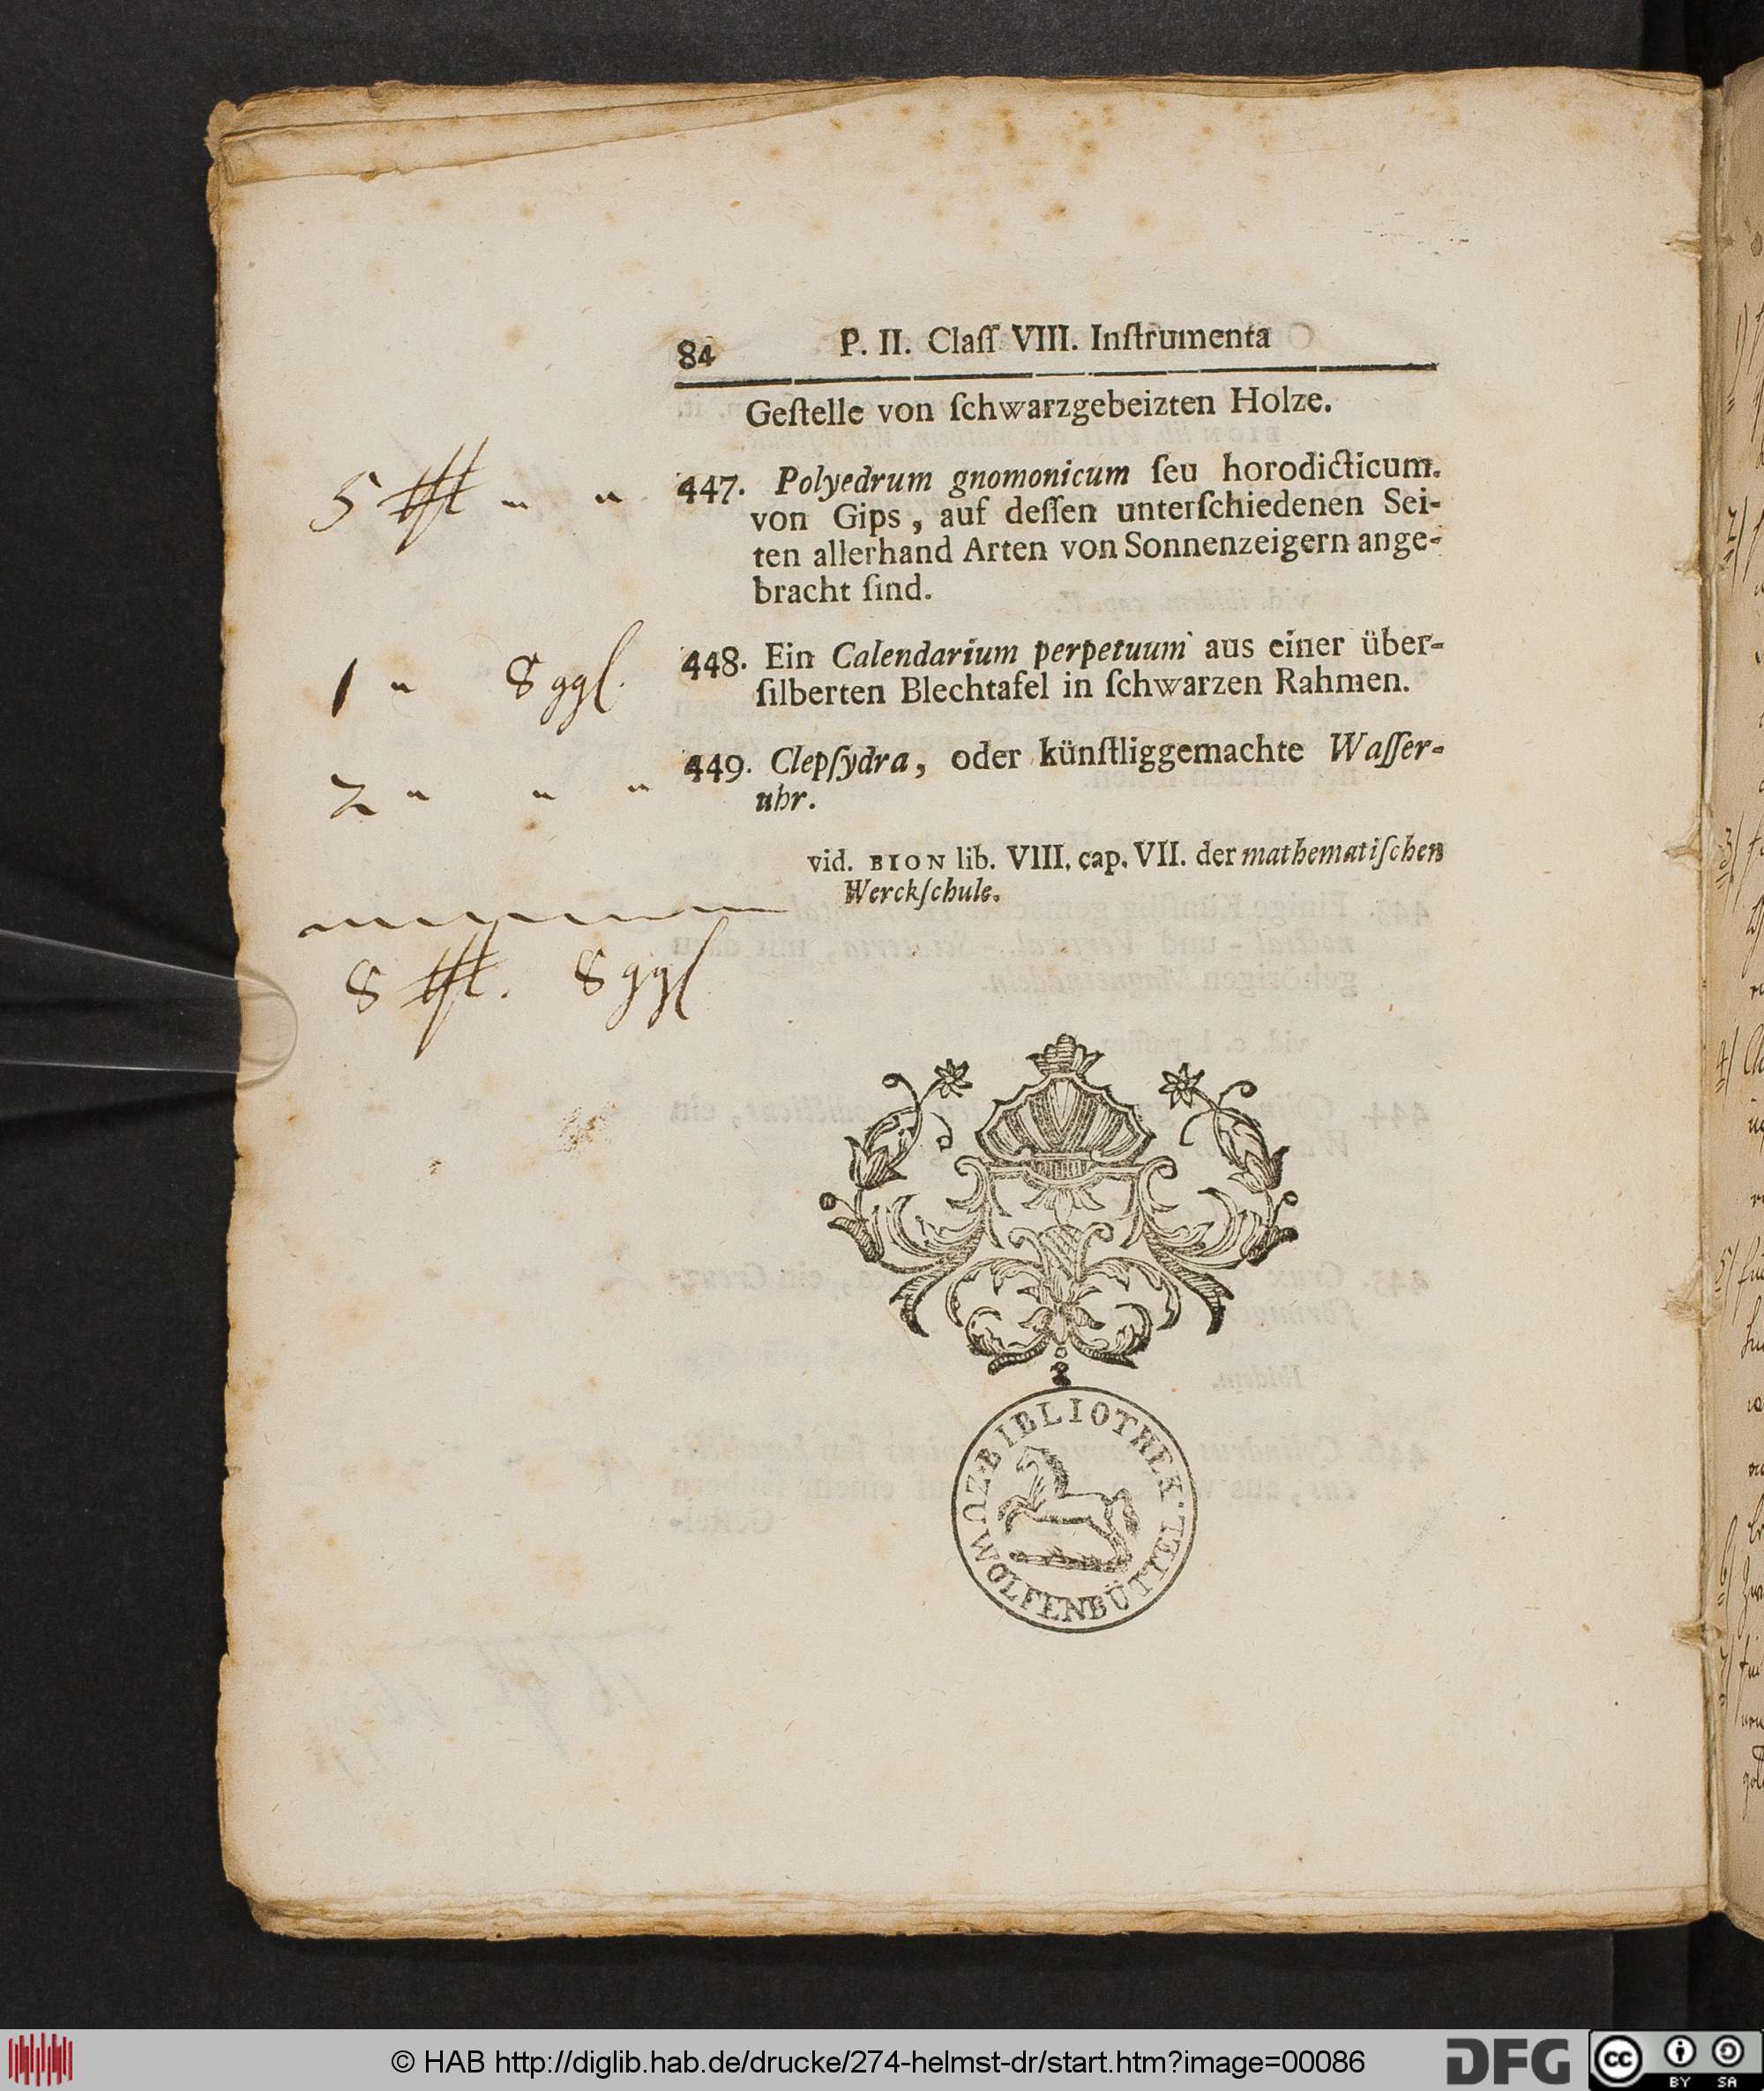 84 P. II. Claſſ VIII. Inſtrumenta
Geſtelle von ſchwarzgebeizten Holze.
447. Polyedrum gnomonicum ſeu horodicticum.
von Gips, auf deſſen unterſchiedenen Sei-
ten allerhand Arten von Sonnenzeigern ange-
bracht ſind.
448. Ein Calendarium perpetuum aus einer über-
ſilberten Blechtafel in ſchwarzen Rahmen.
1 " 8 ggl.
449. Clepſydra, oder künſtliggemachte Waſſer-
uhr.
2 " " "
vid. BION lib. VIII. cap. VII. der mathematiſchen
Werckſchule.
BIBLIOTHEK
WOLFENBÜTTEL
© HAB http://diglib.hab.de/drucke/274-helmst-dr/start.htm?image=00086
DFG
cc BY SA